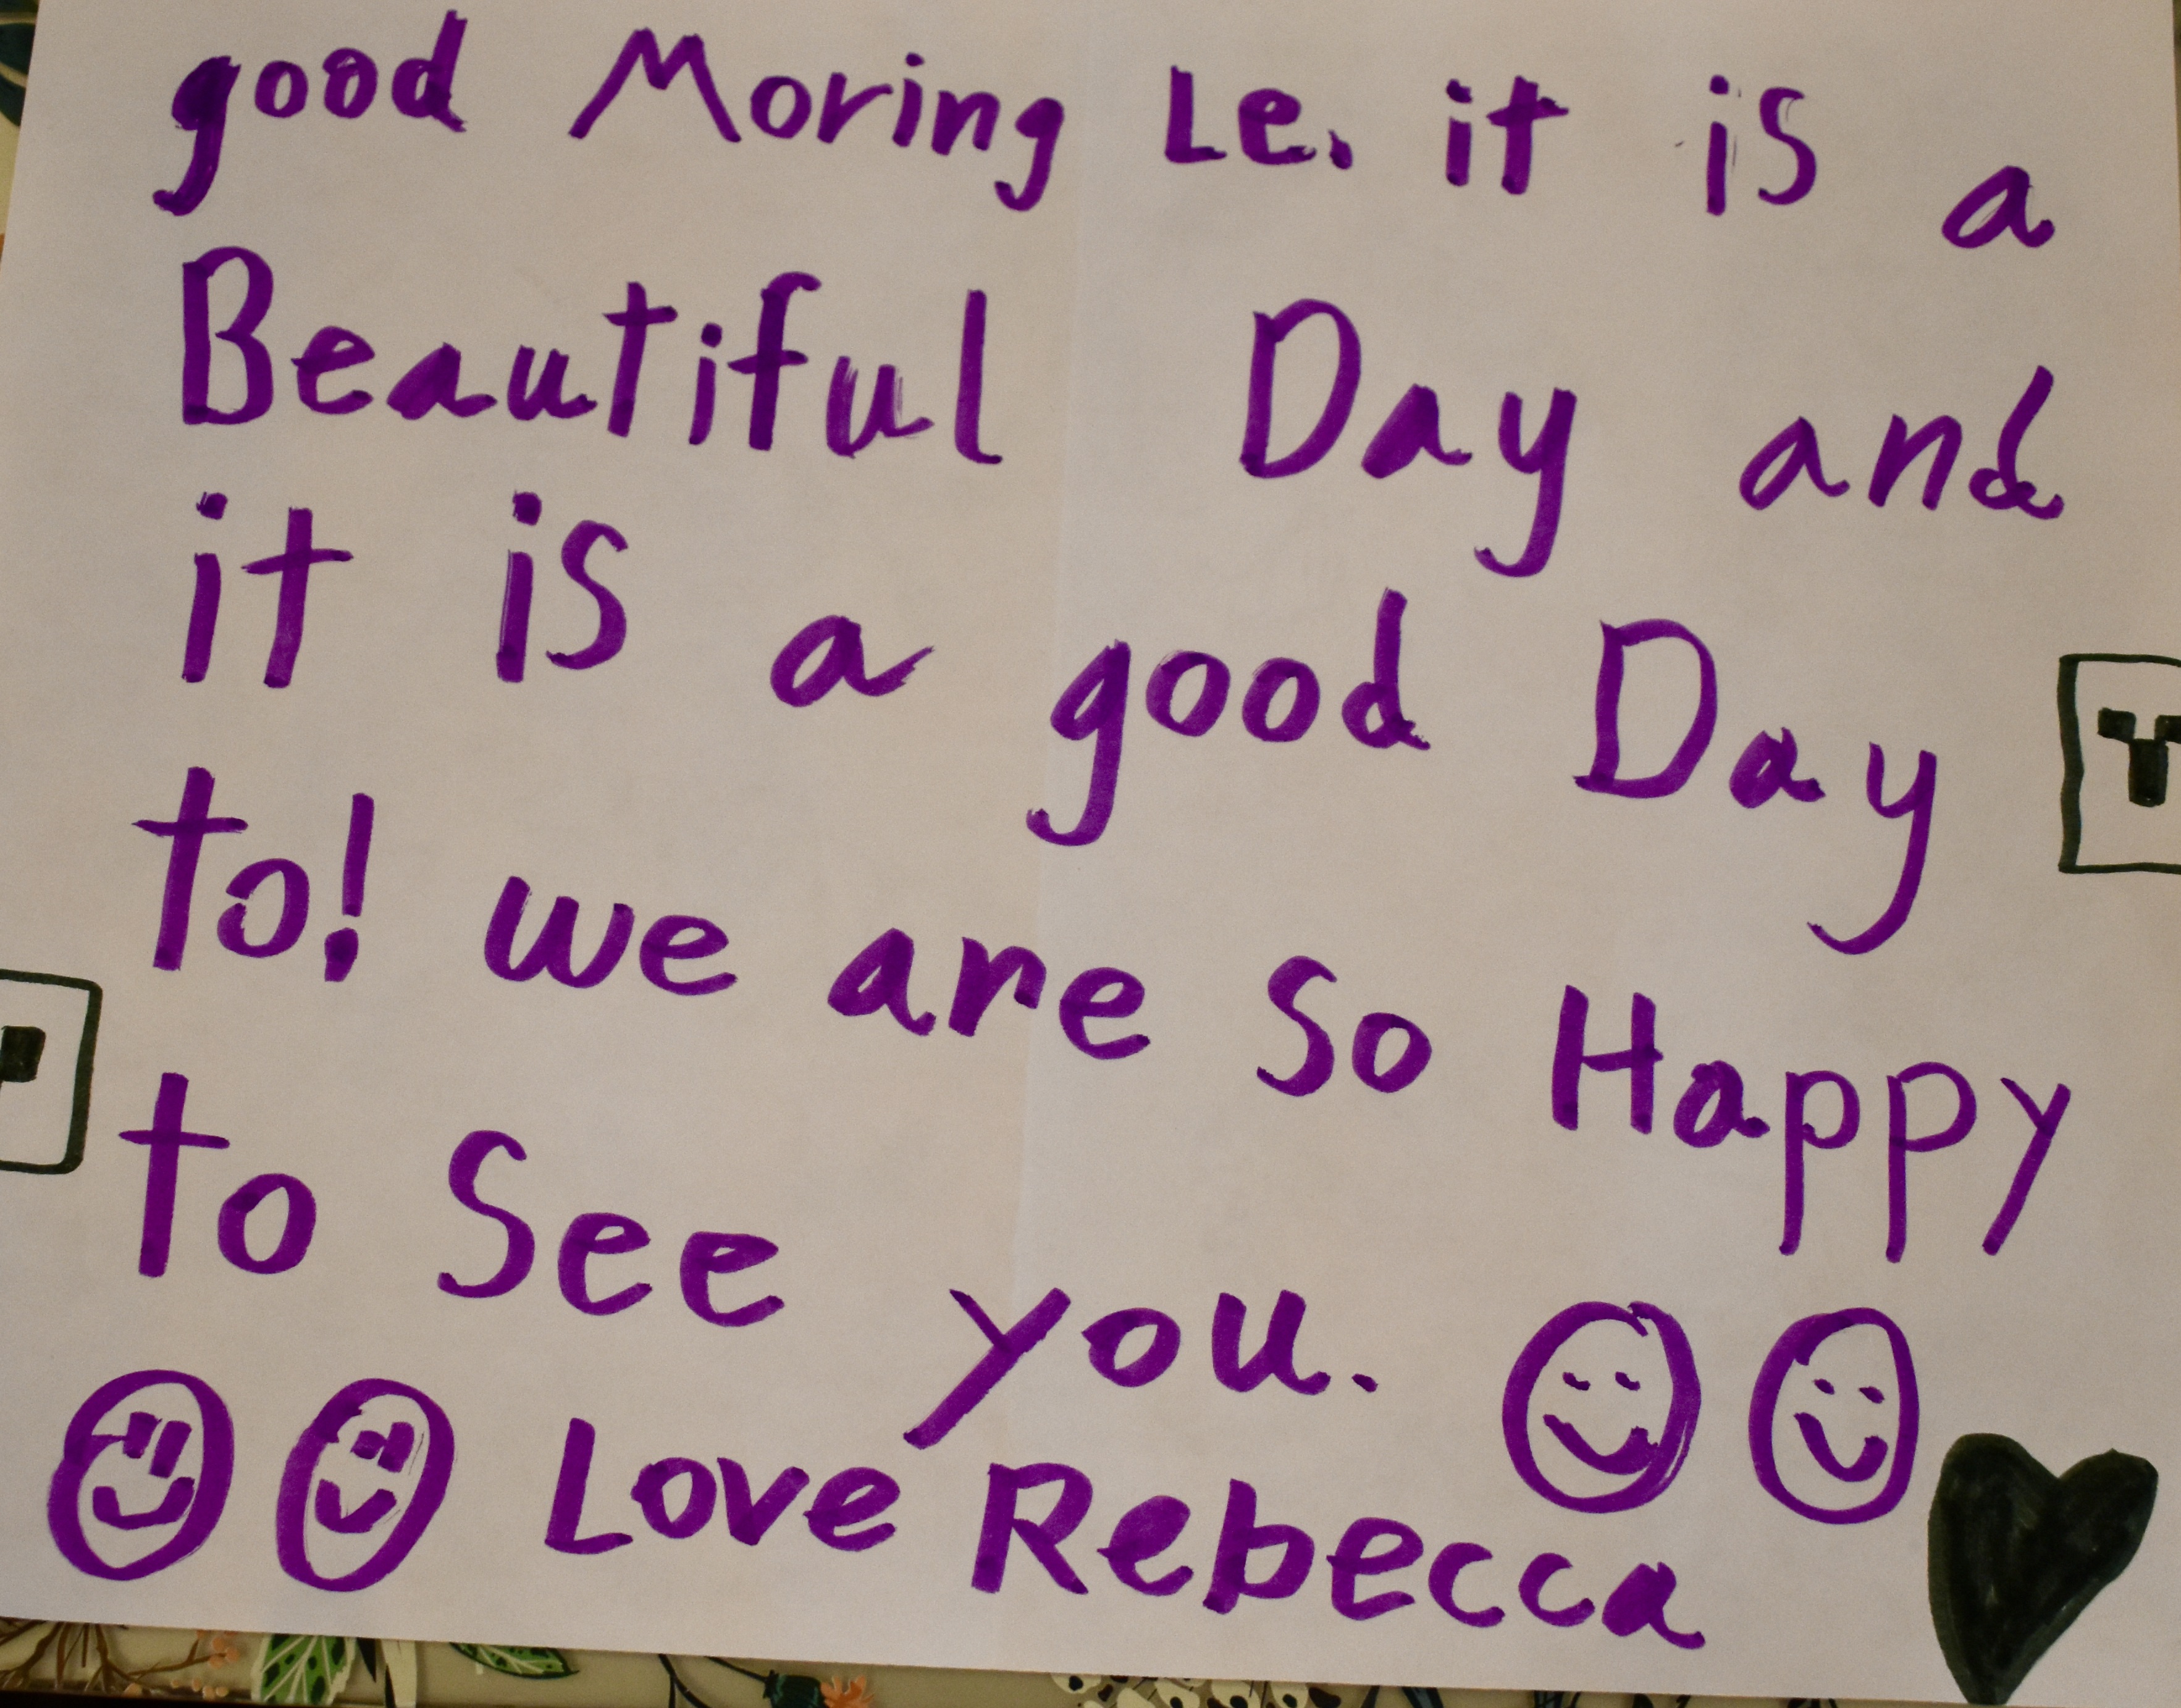 good Moring Le. it is a
Beautiful Day and
it is a good Day
to! we are So Happy
to See you.
Love Rebecca